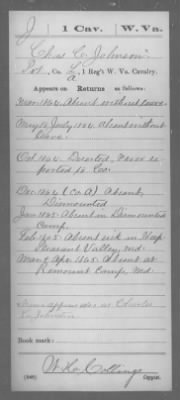 J | 1 Cav. | W. Va.
Chas C. Johnson
Pvt., Co. L, 1 Reg't W. Va. Cavalry.
A
Appears on Returns as follows:
Mar 1864, Absent without leave
May & July 1864, Absent without
leave.
Oct 1864. Deserted, never re-
ported to Co.
Dec 1864 (Co. A) Absent,
Dismounted
Jan 1865 Absent in Dismounted
Camp.
Feb 1865. Absent sick in Hosp
Pleasant Valley, Md.
Mar & Apr 1865. Absent at
Remount Camp, Md.
Name appears also as Charles
C. Johnston
Book mark:
(546)
Copyist.